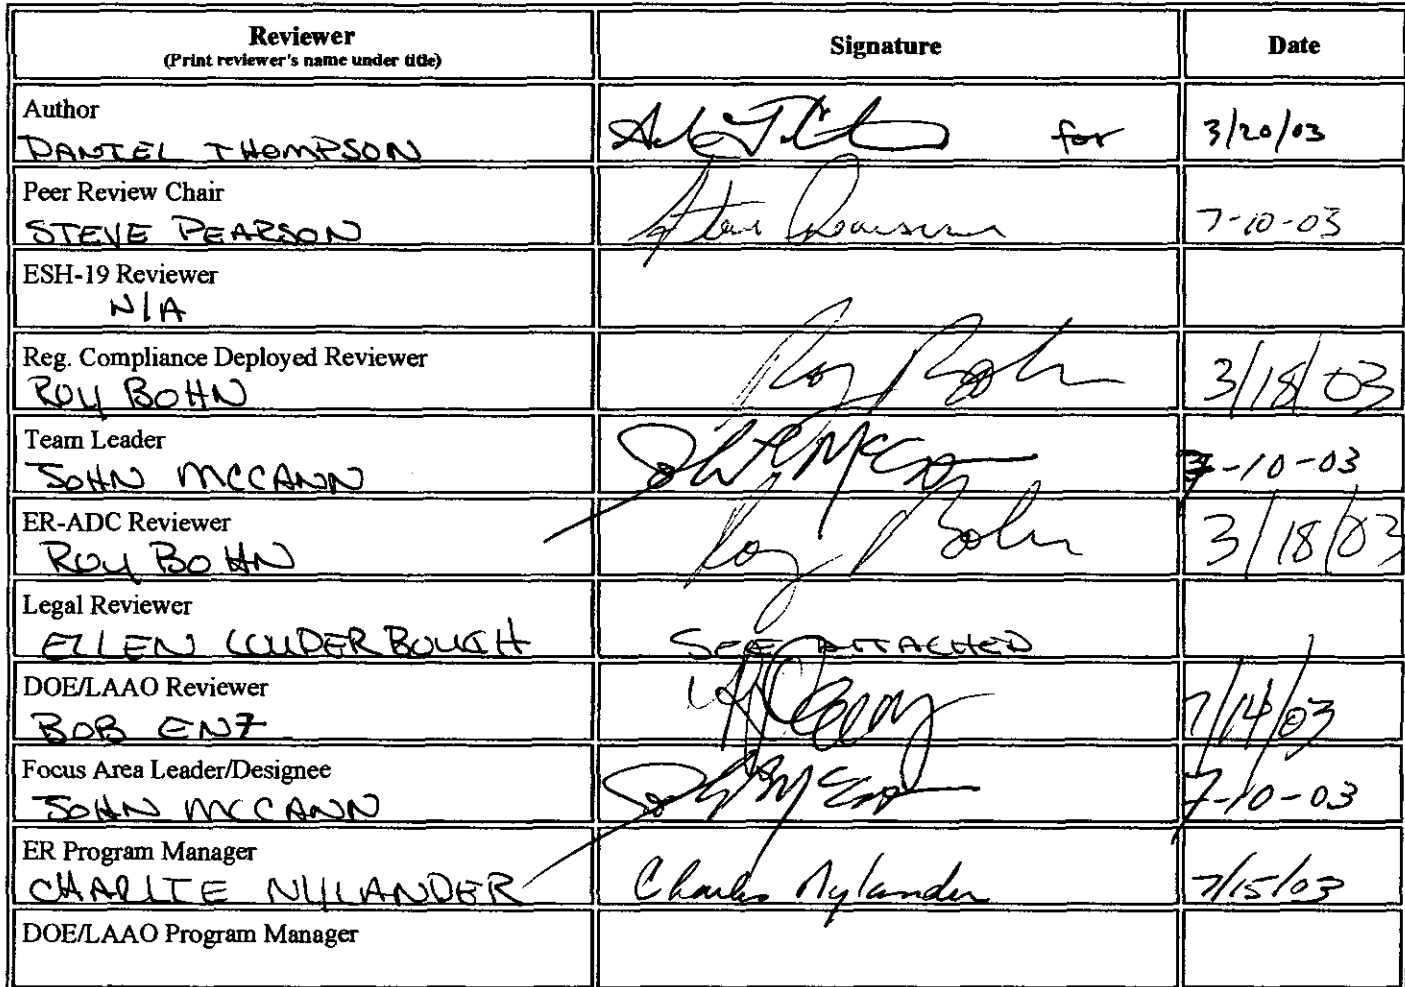 Reviewer Signature Date
(Print reviewer's name under title)
Author
DANIEL THOMPSON for 3/20/03
Peer Review Chair
STEVE PEARSON Steve Pearson 7-10-03
ESH-19 Reviewer
N/A
Reg. Compliance Deployed Reviewer
ROY BOHN Roy Bohn 3/18/03
Team Leader
JOHN MCCANN John McCann 7-10-03
ER-ADC Reviewer
ROY BOHN Roy Bohn 3/18/03
Legal Reviewer
ELLEN LOUDERBOUGH SEE ATTACHED
DOE/LAAO Reviewer
BOB ENZ 7/14/03
Focus Area Leader/Designee
JOHN MCCANN John McCann 7-10-03
ER Program Manager
CHARLIE NYLANDER Charles Nylander 7/15/03
DOE/LAAO Program Manager